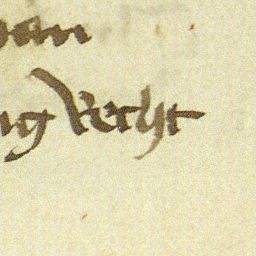 van
ng Recht